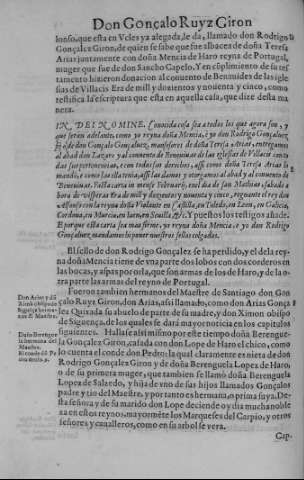 Don Gonçalo Ruyz Giron
lonso, que esta en Vcles ya alegada, le da, llamado don Rodrigo
Gonçalez Giron, de quien se sabe que fue albacea de doña Teresa
Arias juntamente con doña Mencia de Haro reyna de Portugal,
muger que fue de don Sancho Capelo. Y en cumplimiento de su tes
tamento hizieron donacion al conuento de Benuides de las igle
sias de Villacis Era de mill y dozientos y nouenta y cinco, como
testifica la escriptura que esta en aquella casa, que dize desta ma
nera.
IN DEI NOMINE. Conocida cosa sea a todos los que agora son, y
que seran adelante, como yo reyna doña Mencia, è yo don Rodrigo Gonçaluez
de don Gonçalo Gonçaluez, mansessores de doña Teresa Arias, entregamos
al abad don Lazaro y al conuento de Benuiuas de las iglesias de Villacit cinco
con todos sus derechos, assi como doña Teresa Arias la
mandò, e como las ella tenia, assi las damos y otorgamos al abad y al conuento de
Benuiuas. Fatta carta in mense Februarii, en el dia de san Mathias, sabado a
hora de visperas Era de mill y dozientos y nouenta y cinco, regnante el rey don
Alfonso con la reyna doña Violante en Castilla, en Toledo, en Leon, en Galicia,
Cordoua, en Murcia, en Iaen, en Seuilla, &c. Y puestos los testigos añade.
E porque esta carta sea mas firme, yo reyna doña Mencia, e yo don Rodrigo
Gonçaluez, mandamos hi poner nuestros sellos colgados.
El sello de don Rodrigo Gonçalez se ha perdido, y el de la rey-
na doña Mencia tiene de vna parte dos lobos con dos corderos en
las bocas, y aspas por orla, que son armas de los de Haro, y de la o-
tra parte las armas del reyno de Portugal.
Fueron tambien hermanos del Maestre de Santiago don Gon
çalo Ruyz Giron, don Arias, assi llamado, como don Arias Gonça
lez Quixada su abuelo de parte de su madre, y don Ximon obispo
de Siguença, de los quales se darà mayor noticia en los capitulos
siguientes. Hallase assi mismo por este tiempo doña Berengue-
la Gonçalez Giron, casada con don Lope de Haro el chico, como
lo cuenta el conde don Pedro: la qual claramente es nieta de don
Rodrigo Gonçalez Giron y de doña Berenguela Lopez de Haro,
o de su primera muger, que tambien se llamò doña Berenguela
Lopez de Salzedo, y hija de vno de sus hijos llamados Gonçalos
padre y tio del Maestre, y por tanto es hermana, o prima suya. De-
sta señora y de su marido don Lope deciende oy dia mucha noble
za en estos reynos, mayormente los Marqueses del Carpio, y otros
señores y caualleros, como en su arbol se vera.
Cap.
Don Arias y dō
Ximō obispo de
Siguença herma-
nos del Maestre.
Doña Berēguela
la hermana del
Maestre.
El conde dō Pe
dro